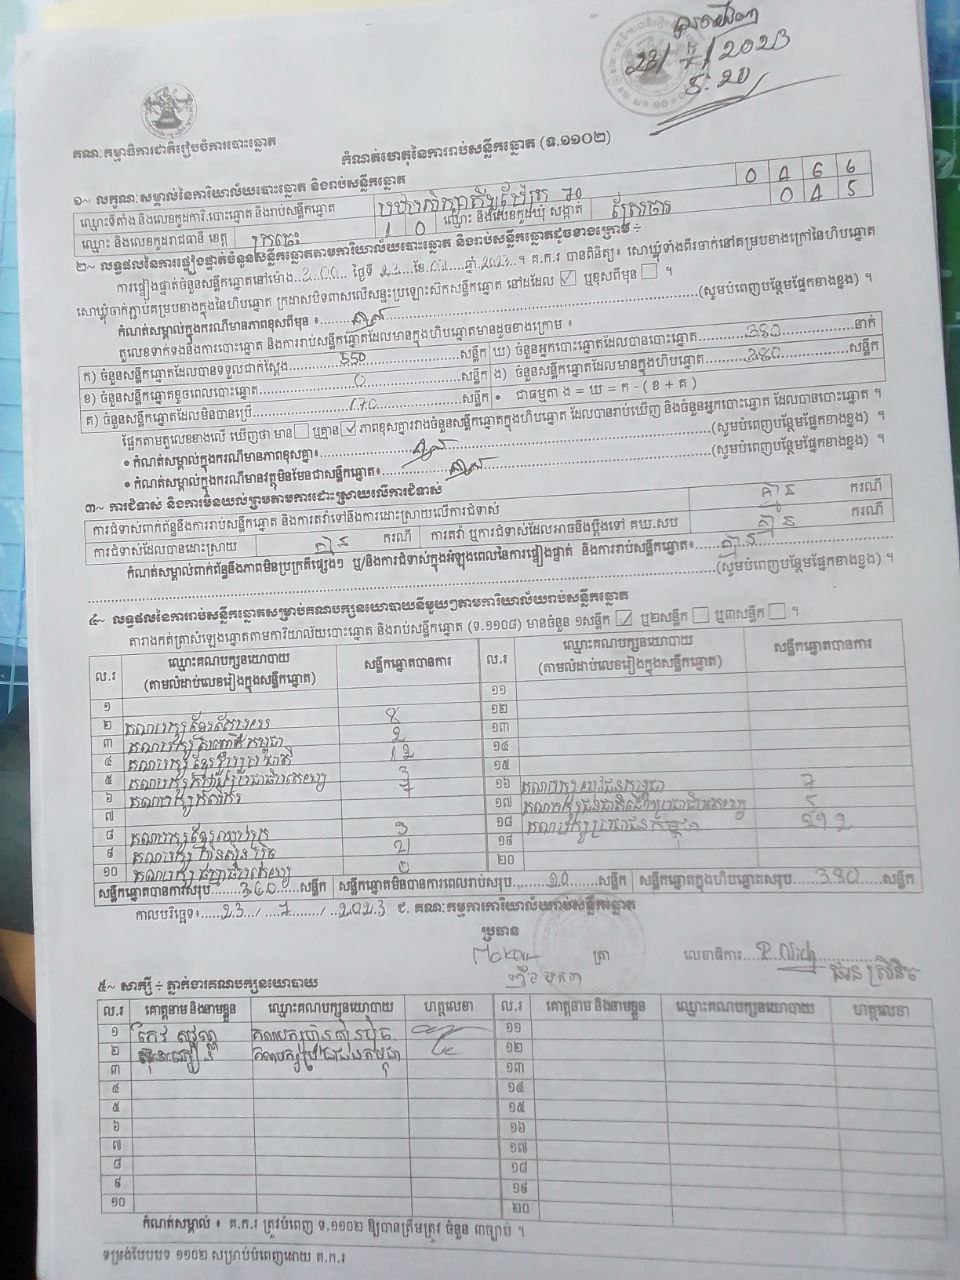 23/7/2023
5:20
គណៈកម្មាធិការជាតិរៀបចំការបោះឆ្នោត
កំណត់ហេតុនៃការរាប់សន្លឹកឆ្នោត (ទ.១១០២)
១~ លក្ខណៈសម្គាល់នៃការិយាល័យបោះឆ្នោត និងរាប់សន្លឹកឆ្នោត
ឈ្មោះទីតាំង និងលេខកូដការិ.បោះឆ្នោត និងរាប់សន្លឹកឆ្នោត
ឈ្មោះ និងលេខកូដរាជធានី ខេត្ត ក្រចេះ 1 0 ឈ្មោះ និងលេខកូដឃុំ សង្កាត់
២~ លទ្ធផលនៃការផ្ទៀងផ្ទាត់ចំនួនសន្លឹកឆ្នោតតាមការិយាល័យបោះឆ្នោត និងរាប់សន្លឹកឆ្នោតដូចខាងក្រោម ÷
ការផ្ទៀងផ្ទាត់ចំនួនសន្លឹកឆ្នោតនៅម៉ោង ថ្ងៃទី 23 ខែ ឆ្នាំ 2023 ។ គ.ក.រ បានពិនិត្យ៖ សោឃ្លុំទាំងពីរចាក់នៅគម្របខាងក្រៅនៃហិបឆ្នោត
សោឃ្លុំចាក់ភ្ជាប់គម្របខាងក្នុងនៃហិបឆ្នោត ក្រដាសបិទពាសលើសន្ទះប្រឡោះស៊កសន្លឹកឆ្នោត នៅដដែល ☑ ឬខុសពីមុន ☐ ។
កំណត់សម្គាល់ក្នុងករណីមានភាពខុសពីមុន ៖ (សូមបំពេញបន្ថែមផ្នែកខាងខ្នង) ។
តួលេខទាក់ទងនឹងការបោះឆ្នោត និងការរាប់សន្លឹកឆ្នោតដែលមានក្នុងហិបឆ្នោតមានដូចខាងក្រោម ៖
ក) ចំនួនសន្លឹកឆ្នោតដែលបានទទួលជាក់ស្តែង 550 សន្លឹក ឃ) ចំនួនអ្នកបោះឆ្នោតដែលបានបោះឆ្នោត 380 នាក់
ខ) ចំនួនសន្លឹកឆ្នោតខូចពេលបោះឆ្នោត 0 សន្លឹក ង) ចំនួនសន្លឹកឆ្នោតដែលមានក្នុងហិបឆ្នោត 380 សន្លឹក
គ) ចំនួនសន្លឹកឆ្នោតដែលមិនបានប្រើ 170 សន្លឹក • ជាធម្មតា ង = ឃ = ក - ( ខ + គ )
ផ្អែកតាមតួលេខខាងលើ ឃើញថា មាន ☐ ឬគ្មាន ☑ ភាពខុសគ្នារវាងចំនួនសន្លឹកឆ្នោតក្នុងហិបឆ្នោត ដែលបានរាប់ឃើញ និងចំនួនអ្នកបោះឆ្នោត ដែលបានបោះឆ្នោត ។
• កំណត់សម្គាល់ក្នុងករណីមានភាពខុសគ្នា៖ (សូមបំពេញបន្ថែមផ្នែកខាងខ្នង) ។
• កំណត់សម្គាល់ក្នុងករណីមានវត្ថុមិនមែនជាសន្លឹកឆ្នោត៖ (សូមបំពេញបន្ថែមផ្នែកខាងខ្នង) ។
៣~ ការជំទាស់ និងការមិនយល់ព្រមតាមការដោះស្រាយលើការជំទាស់
ការជំទាស់ពាក់ព័ន្ធនឹងការរាប់សន្លឹកឆ្នោត និងការតវ៉ាទៅនឹងការដោះស្រាយលើការជំទាស់ គ្មាន ករណី
ការជំទាស់ដែលបានដោះស្រាយ គ្មាន ករណី ការតវ៉ា ឬការជំទាស់ដែលអាចនឹងប្តឹងទៅ គឃ.សប គ្មាន ករណី
កំណត់សម្គាល់ពាក់ព័ន្ធនឹងភាពមិនប្រក្រតីផ្សេងៗ ឬ/និងការជំទាស់ក្នុងអំឡុងពេលនៃការផ្ទៀងផ្ទាត់ និងការរាប់សន្លឹកឆ្នោត៖ គ្មាន
(សូមបំពេញបន្ថែមផ្នែកខាងខ្នង) ។
៤~ លទ្ធផលនៃការរាប់សន្លឹកឆ្នោតសម្រាប់គណបក្សនយោបាយនីមួយៗតាមការិយាល័យរាប់សន្លឹកឆ្នោត
តារាងកត់ត្រាសំឡេងឆ្នោតតាមការិយាល័យបោះឆ្នោត និងរាប់សន្លឹកឆ្នោត (ទ.១១០៨) មានចំនួន ១សន្លឹក ☑ ឬ២សន្លឹក ☐ ឬ៣សន្លឹក ☐ ។
ល.រ ឈ្មោះគណបក្សនយោបាយ (តាមលំដាប់លេខរៀងក្នុងសន្លឹកឆ្នោត) សន្លឹកឆ្នោតបានការ ល.រ ឈ្មោះគណបក្សនយោបាយ (តាមលំដាប់លេខរៀងក្នុងសន្លឹកឆ្នោត) សន្លឹកឆ្នោតបានការ
១ ១១
២ គណបក្ស 8 ១២
៣ គណបក្ស 2 ១៣
៤ គណបក្ស ខ្មែរ 12 ១៤
៥ គណបក្ស 3 ១៥
៦ គណបក្ស កសិករ ១៦ គណបក្ស 7
៧ ១៧ គណបក្ស 5
៨ គណបក្ស ខ្មែរ 3 ១៨ គណបក្ស ប្រជាជនកម្ពុជា
៩ គណបក្ស 21 ១៩
១០ គណបក្ស 0 ២០
សន្លឹកឆ្នោតបានការសរុប 360 សន្លឹក សន្លឹកឆ្នោតមិនបានការពេលរាប់សរុប 20 សន្លឹក សន្លឹកឆ្នោតក្នុងហិបឆ្នោតសរុប 380 សន្លឹក
កាលបរិច្ឆេទ៖ 23 / 7 / 2023 ៩. គណៈកម្មការការិយាល័យរាប់សន្លឹកឆ្នោត
ប្រធាន
ត្រា លេខាធិការ
៥~ សាក្សី ÷ ភ្នាក់ងារគណបក្សនយោបាយ
ល.រ គោត្តនាម និងនាមខ្លួន ឈ្មោះគណបក្សនយោបាយ ហត្ថលេខា ល.រ គោត្តនាម និងនាមខ្លួន ឈ្មោះគណបក្សនយោបាយ ហត្ថលេខា
១ កែវ គណបក្ស ១១
២ គណបក្ស ប្រជាជនកម្ពុជា ១២
៣ ១៣
៤ ១៤
៥ ១៥
៦ ១៦
៧ ១៧
៨ ១៨
៩ ១៩
១០ ២០
កំណត់សម្គាល់ ៖ គ.ក.រ ត្រូវបំពេញ ទ.១១០២ ឱ្យបានត្រឹមត្រូវ ចំនួន ៣ច្បាប់ ។
ទម្រង់បែបបទ ១១០២ សម្រាប់បំពេញដោយ គ.ក.រ